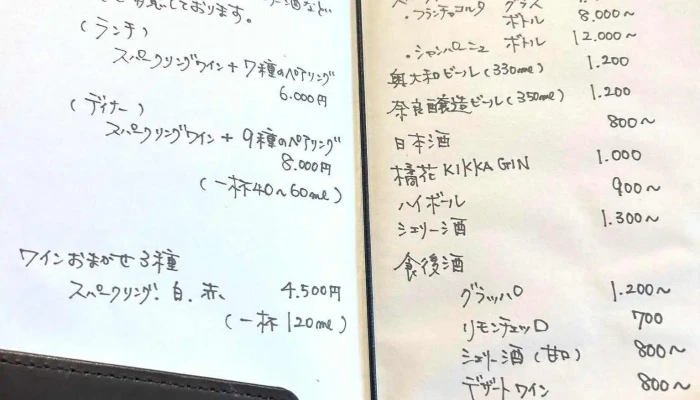 しております。
(ランチ)
スパークリングワイン+7種のペアリング
6.000円
(ディナー)
スパークリングワイン+9種のペアリング
8.000円
(一杯40~60ml)
ワインおまかせ3種
スパークリング.白.赤、 4.500円
(一杯120ml)
・フランチャコルタ グラス
ボトル 8.000~
・シャンパーニュ ボトル 12.000~
奥大和ビール(330ml) 1.200
奈良醸造ビール(350ml) 1.200
日本酒 800~
橘花KIKKA GIN 1.000
ハイボール 900~
シェリー酒 1.300~
食後酒
グラッパ 1.200~
リモンチェッロ 700
シェリー酒(甘口) 800~
デザートワイン 800~